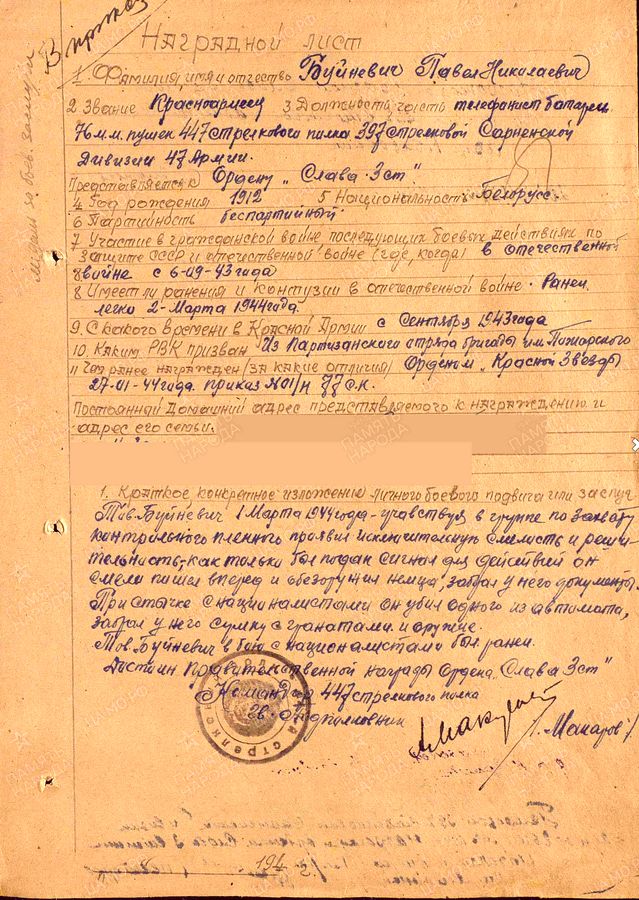 В приказ
Медаль за боев. заслуги
Наградной лист
1. Фамилия, имя и отчество Буйневич Павел Николаевич
2 Звание Красноармеец 3 Должность, часть телефонист батареи
76 м.м. пушек 447 стрелкового полка 397 стрелковой Сарненской
дивизии 47 Армии.
Представляется к Ордену "Слава 3ст"
4 Год рождения 1912 5 Национальность Белорусс
6 Партийность беспартийный
7 Участие в гражданской войне последующих боевых действиях по
защите СССР и отечественной войне (где, когда) в отечественной
войне с 6-09-43 года
8 Имеет ли ранения и контузии в отечественной войне. Ранен
легко 2-Марта 1944 года.
9. С какого времени в Красной Армии с Сентября 1943 года
10. Каким РВК призван Из Партизанского отряда бригады им. Пожарского
11 Чем ранее награжден /за какие отличия/ Орденом "Красной Звезды
27-01-44 года. приказ №01/н 77 с.к.
Постоянный домашний адрес представляемого к награждению и
адрес его семьи.
1. Краткое, конкретное изложение личного боевого подвига или заслуг
Тов. Буйневич 1 Марта 1944 года - участвуя в группе по захвату
контрольного пленного проявил исключительную смелость и реши-
тельность, как только был подан сигнал для действий он
смело пошел вперед и обезоружил немца, забрал у него документы.
При стычке с националистами он убил одного из автомата,
забрал у него сумку с гранатами и оружие.
Тов. Буйневич в бою с националистами был ранен.
Достоин Правительственной награды Ордена "Слава 3ст"
Командир 447 стрелкового полка
гв. Подполковник
/Макаров/
194 г.
ПАМЯТЬ НАРОДА